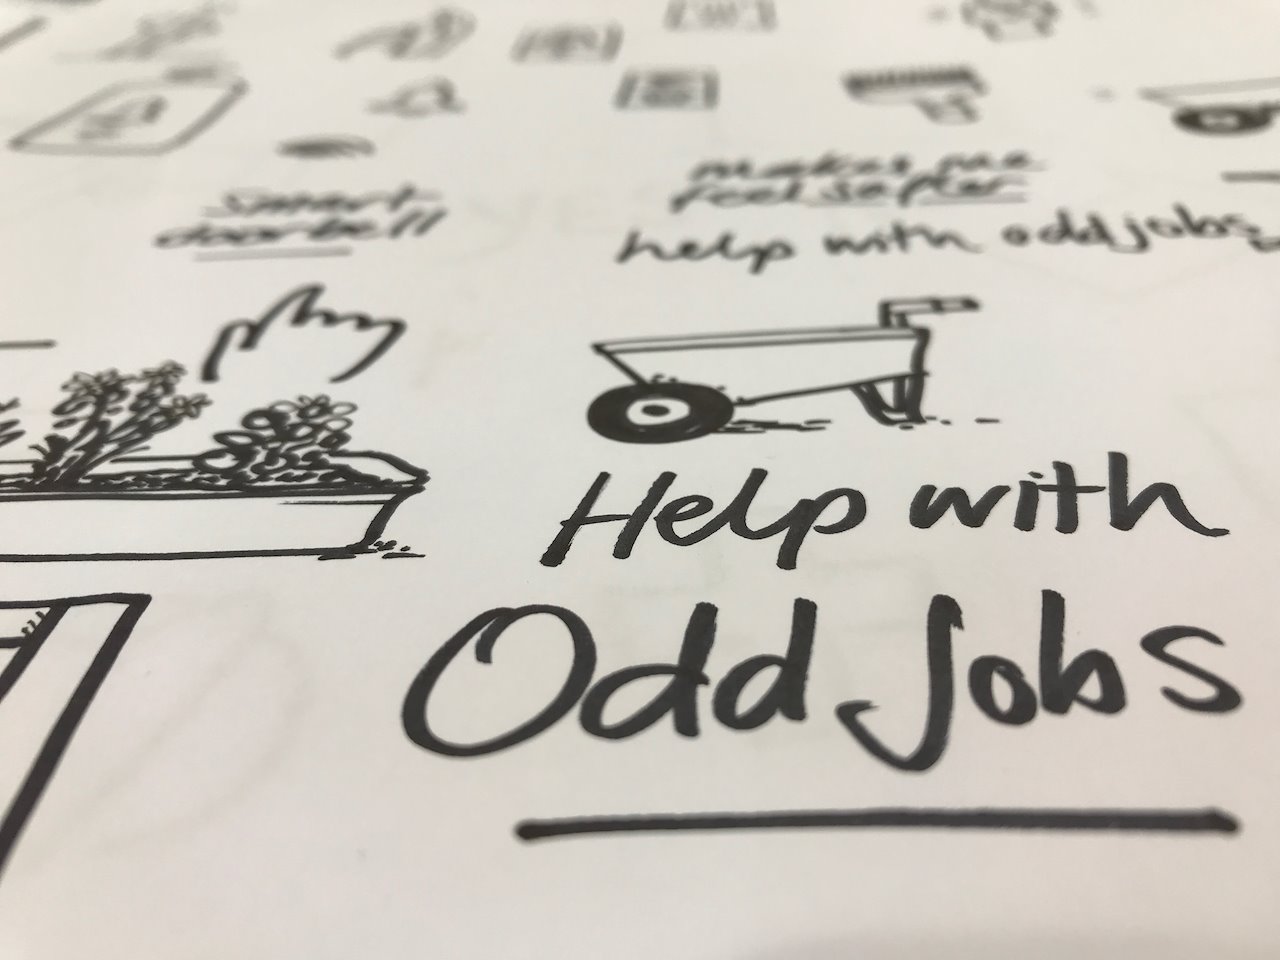 Smart
doorbell
makes me
feel safer
help with odd jobs
Help with
Odd Jobs